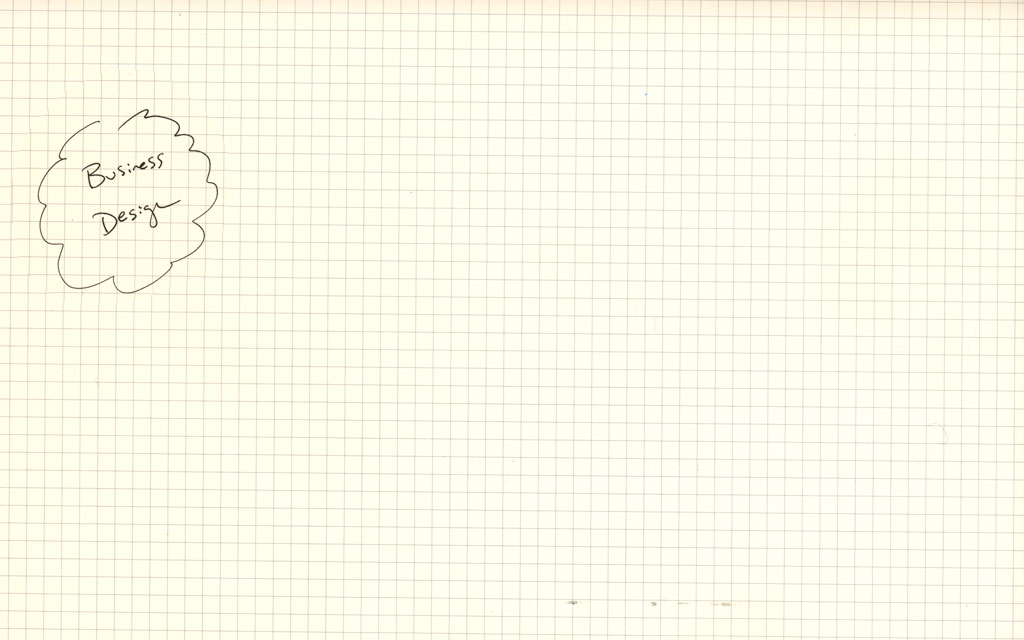 Business
Design